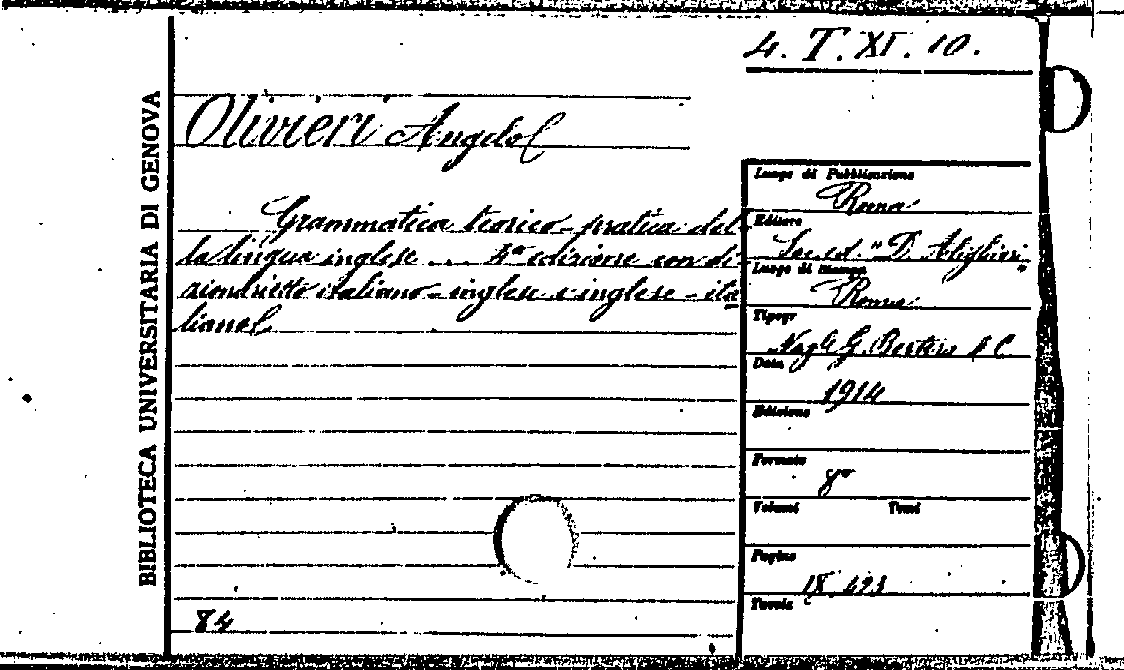 BIBLIOTECA UNIVERSITARIA DI GENOVA
4. T. XI. 10.
Olivieri Angelo
Grammatica teorico-pratica del-
la lingua inglese ... 4ª edizione con di-
zionarietto italiano-inglese e inglese-ita
liano
84
Luogo di Pubblicazione
Roma
Editore
Soc. ed. "D. Alighieri"
Luogo di stampa
Roma
Tipogr
G. Bertero & C
Data
1914
Edizione
Formato
8º
Volumi Tomi
Pagine
IX. 493
Tavole